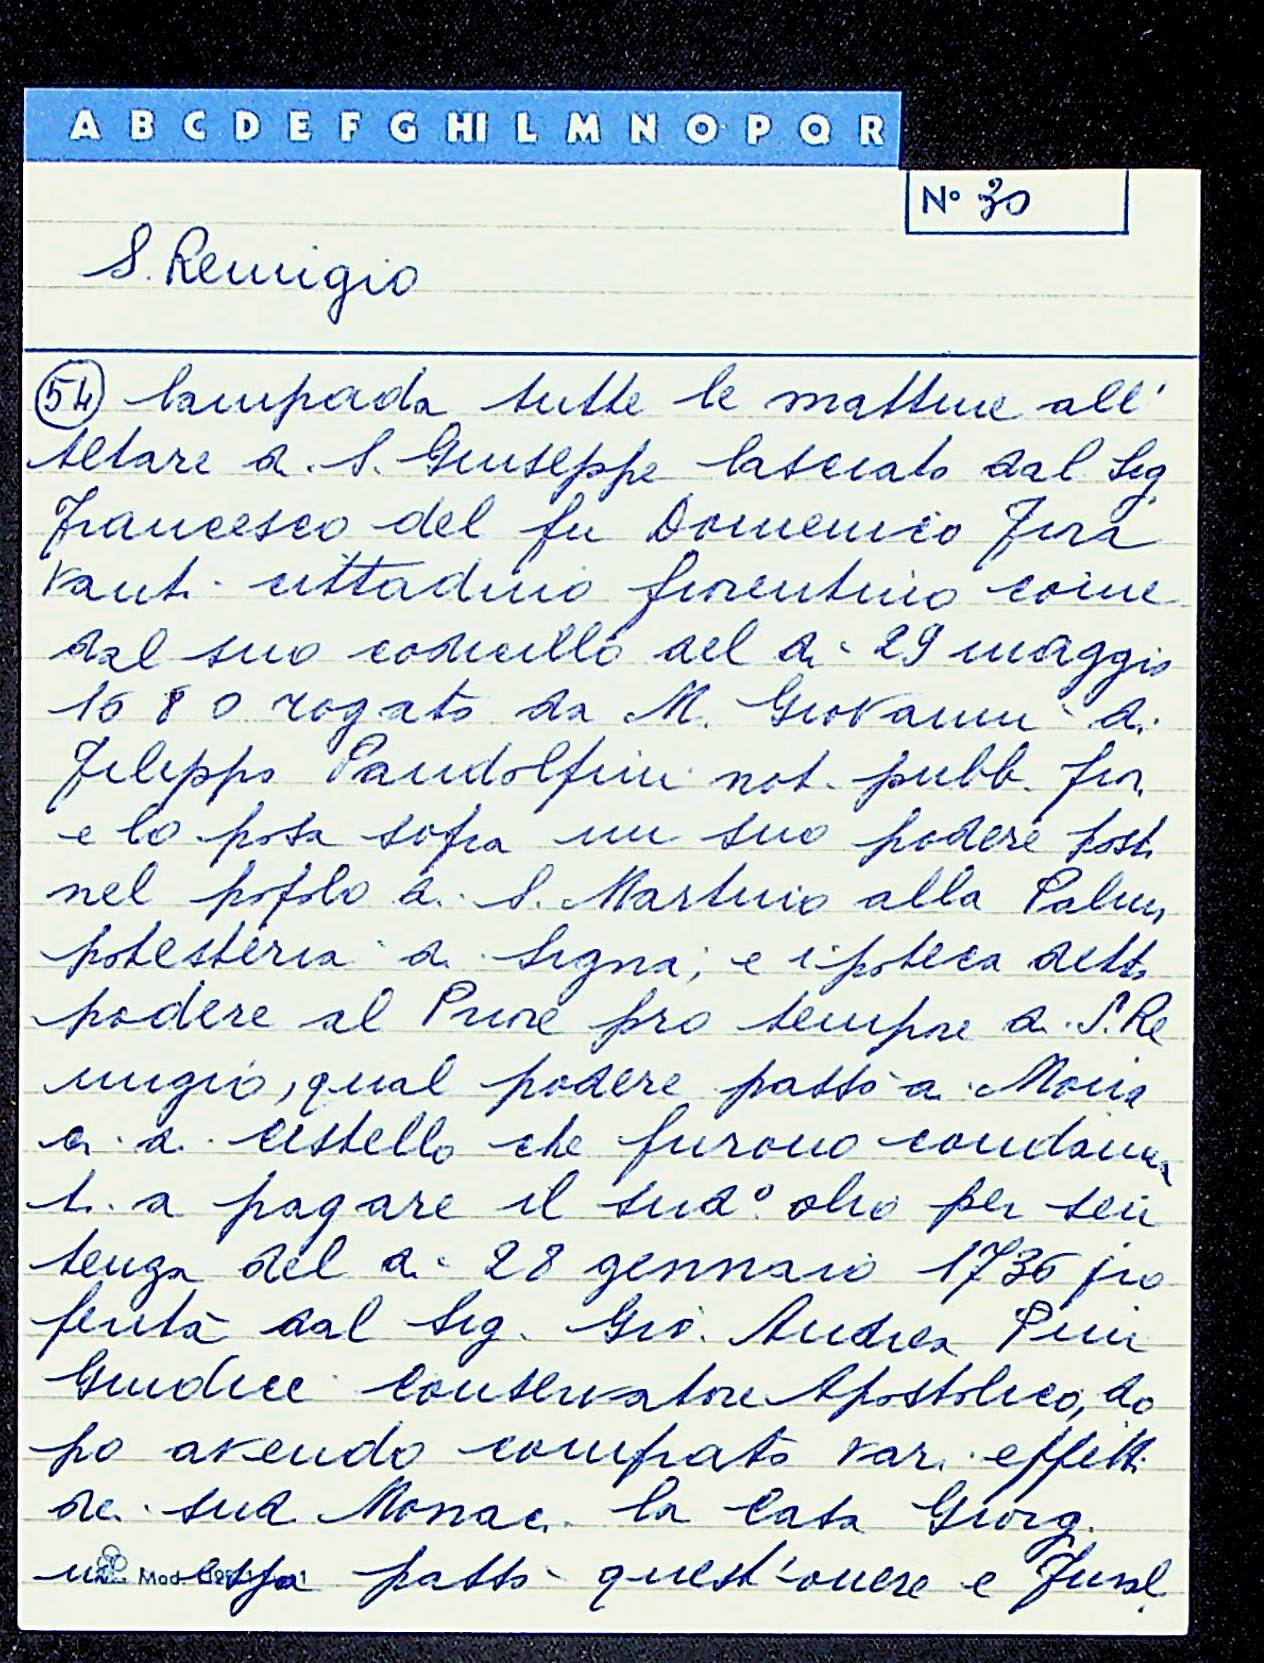 A B C D E F G HI L M N O P Q R
N° 30
S. Remigio
54 lampada tutte le mattine all'
altare di S. Giuseppe lasciato dal Sig
Francesco del fu Domenico Fira
vanti cittadino fiorentino come
dal suo codicillo del di 29 maggio
1680 rogato da M. Giovanni di
Filippo Pandolfini not. pubb. fior.
e lo posa sopra un suo podere post.
nel popolo di S. Martino alla Palma
potesteria di Signa; e ipoteca detto
podere al Priore pro tempore di S. Re
migio, qual podere passò a Mona
ci di Cistello che furono condanna
ti a pagare il sud° olio per sen
tenza del di 28 gennaio 1736 pro
ferita dal Sig. Gio. Andrea Pini
Giudice Conservatore Apostolico, do
po avendo comprato vari effetti
dei sud. Monaci la Casa Giorgi
in essa passò quest'onere e